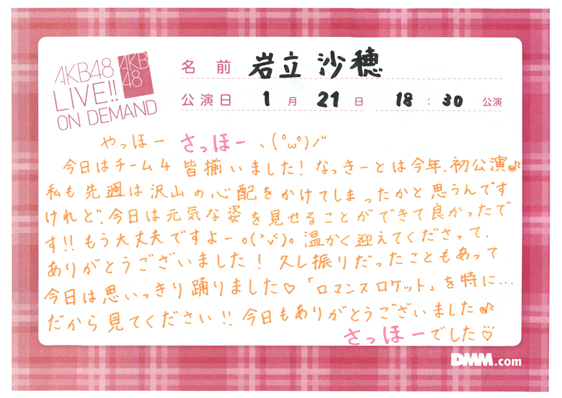 AKB48
LIVE!!
ON DEMAND
AKB
48
名 前 岩立 沙穂
公演日 1 月 21 日 18 : 30 公演
やっほー さっほー ヽ(°ω°)ノ
今日はチーム4 皆揃いました! なっきーとは今年、初公演♪
私も先週は沢山の心配をかけてしまったかと思うんです
けれど、今日は元気な姿を見せることができて良かったで
す!! もう大丈夫ですよー。 温かく迎えてくださって、
ありがとうございました! 久し振りだったこともあって
今日は思いっきり踊りました♡ 「ロマンスロケット」を特に...
だから見てください!! 今日もありがとうございました♪
さっほーでした♡
DMM.com